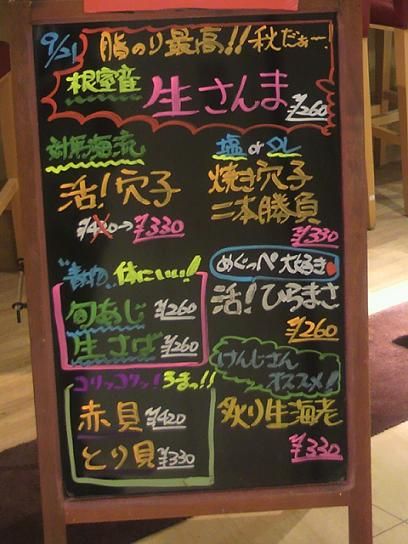 9/21 脂のり最高!! 秋だぁー!
根室産 生さんま ¥260
対馬海流
活!穴子
¥420→¥330
塩orタレ
焼き穴子
二本勝負
¥330
青物、体にいい!!
旬あじ ¥260
生さば ¥260
めぐっぺ大好き♥
活!ひらまさ
¥260
コリッコリッ! うまっ!!
赤貝 ¥420
とり貝 ¥330
けんじさん
オススメ!
炙り生海老
¥330